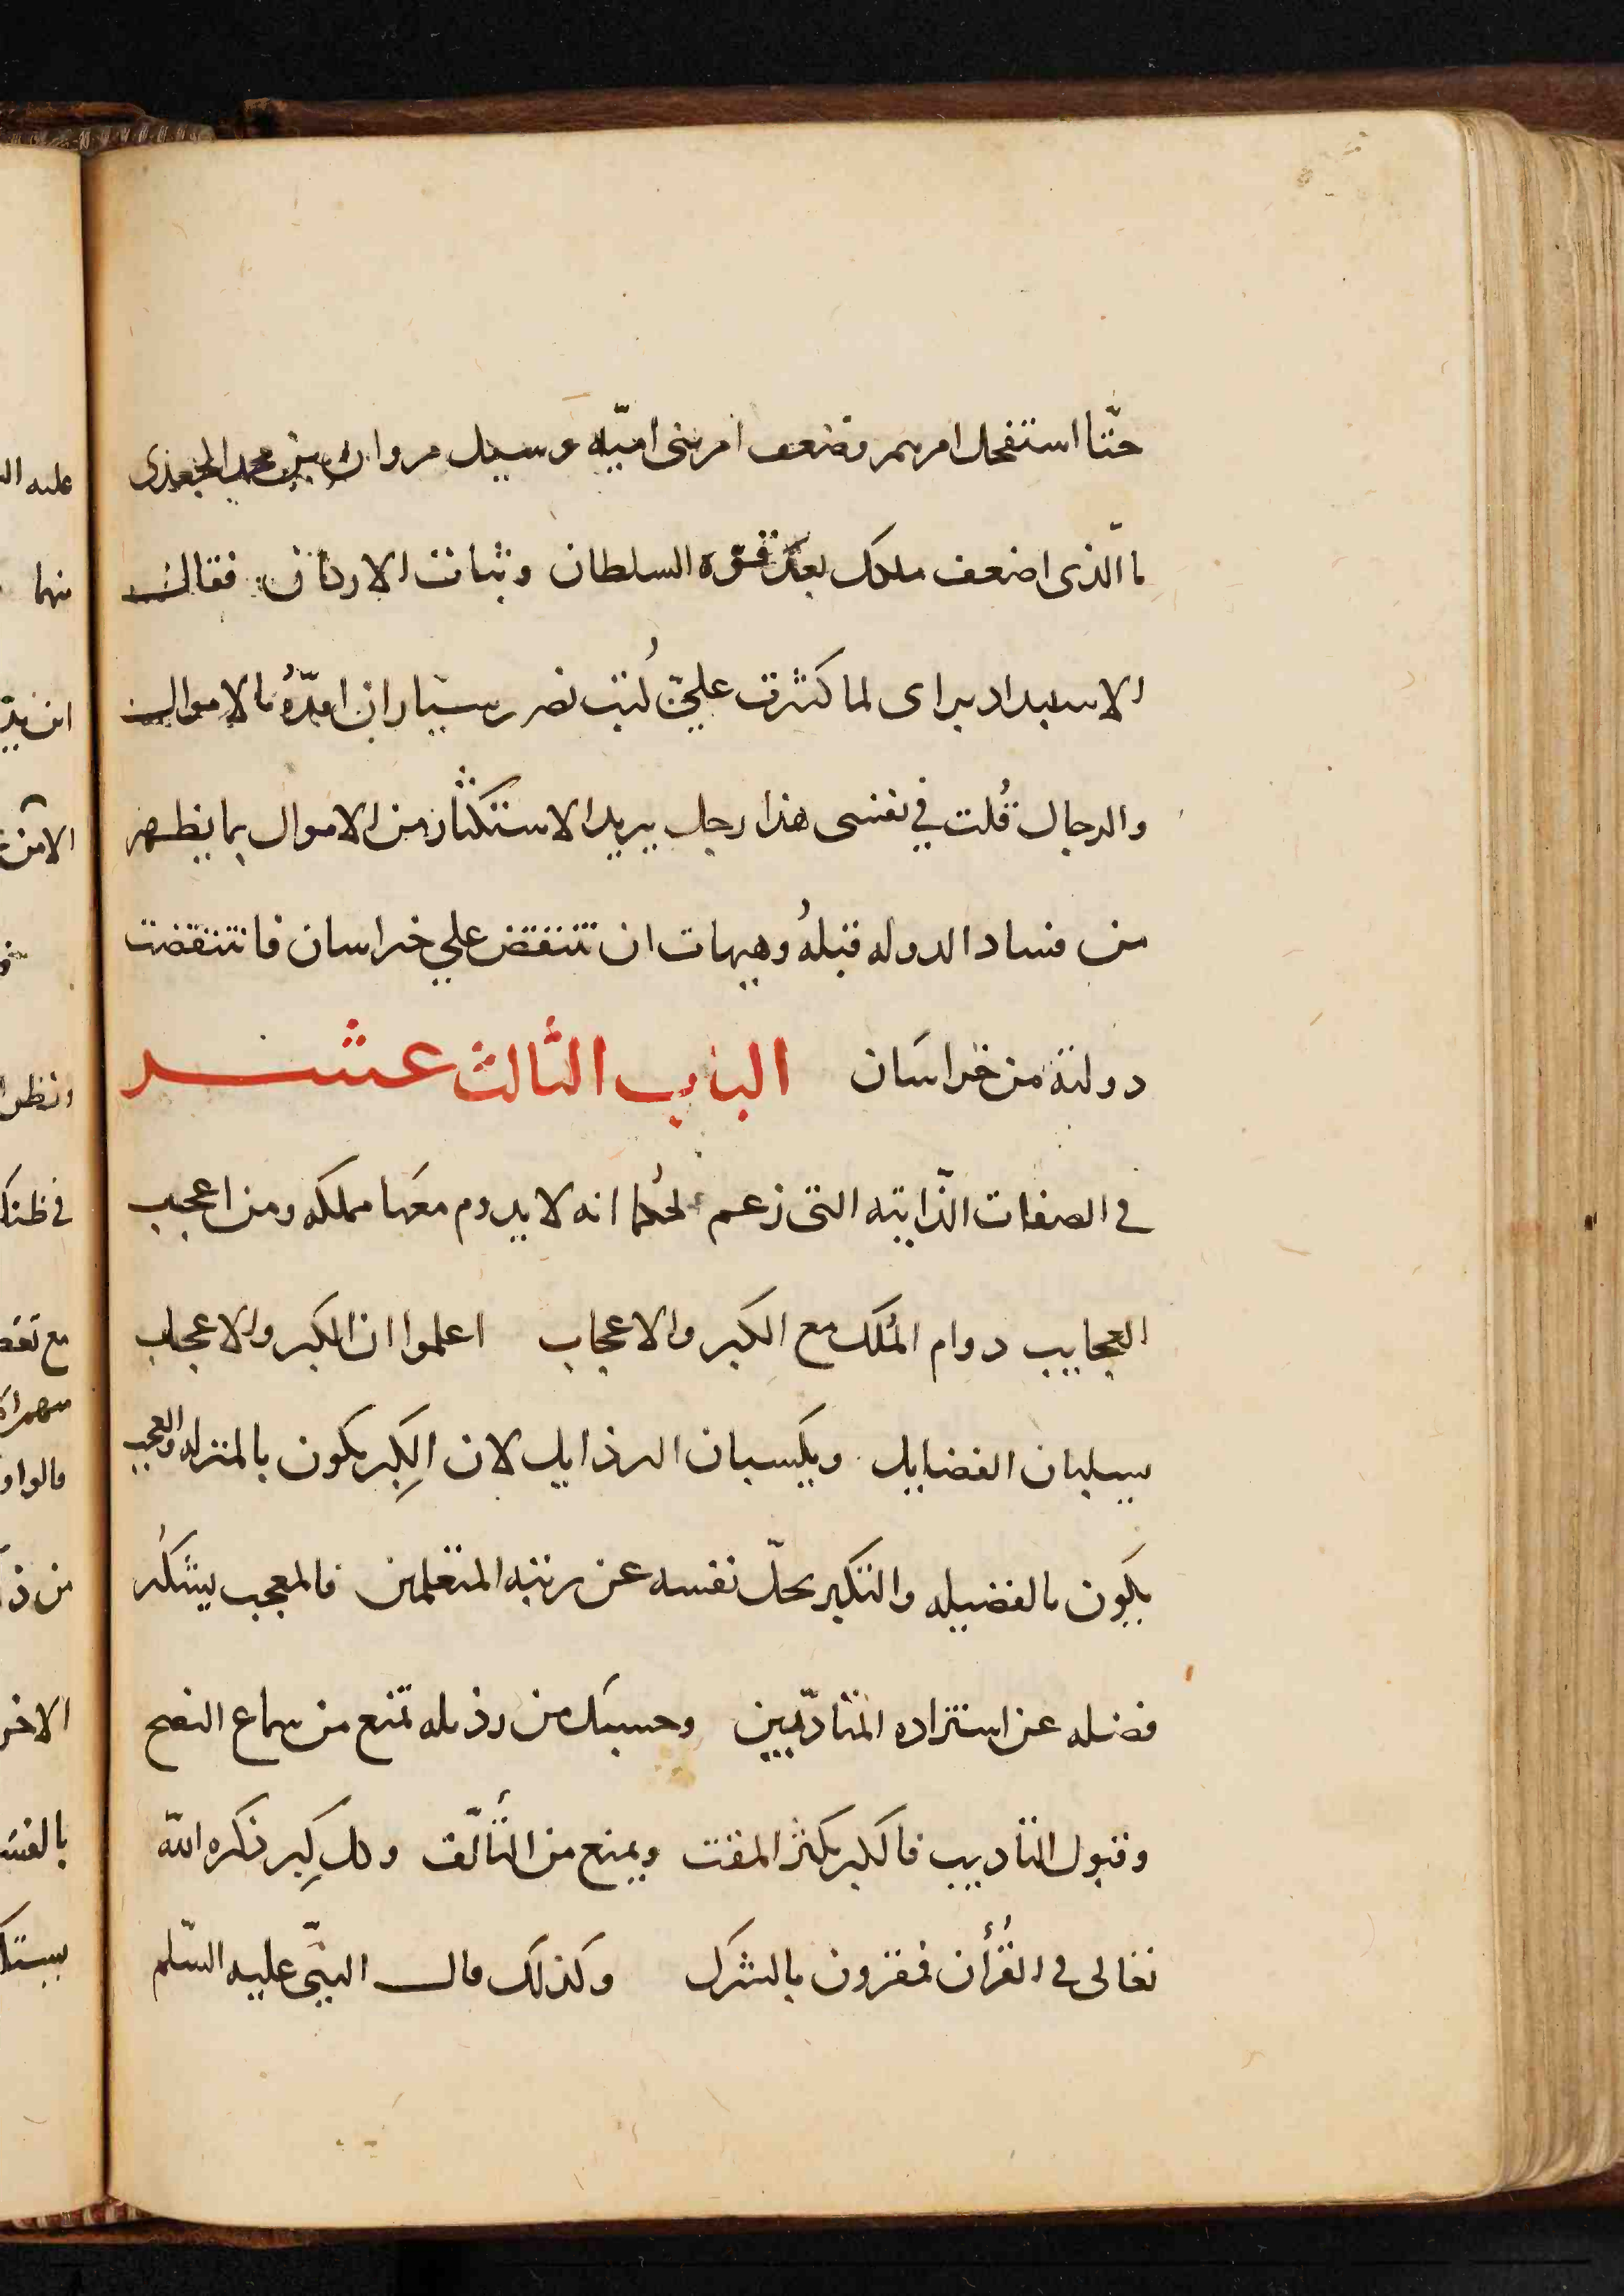 حتّا استفحل امرهم وضعف امر بنى اميّه وسيل مروان بن محمد الجعدى
ما الّذى اضعف ملكك بعد قوّه السلطان وثبات الاركان فقال
الاستبداد براى لما كثرت علىّ كُتب نصر بن سيّار ان امدّهُ بالاموال
والرجال قُلت في نفسى هذا رجل يريد الاستكثار من الاموال بما يظهر
من فساد الدوله قبلهُ وهيهات ان تنتقض علي خراسان فانتقضت
دولته من خراسان الباب الثالث عشر
في الصفات الذّاتيه التى زعم الحُكما انه لا يدوم معَها مملكه ومن اعجب
العجايب دوام المُلك مع الكبر والاعجاب اعلموا ان الكبر والاعجاب
يسلبان الفضايل ويكسبان الرذايل لان الكِبر يكون بالمنزله والعجب
يكون بالفضيله والمتكبر يجلّ نفسه عن رتبه المتعلمين فالمعجب يستكثر
فضله عن استزاده المتادّبين وحسبَك من رذيله تمنع من سماع النصح
وقبول التاديب فالكبر يكثر المقت ويمنع من التألّف وكل كِبر ذكره الله
تعالى في القُرأن فمقرون بالشرك وكذلك قال النبىّ عليه السّلم